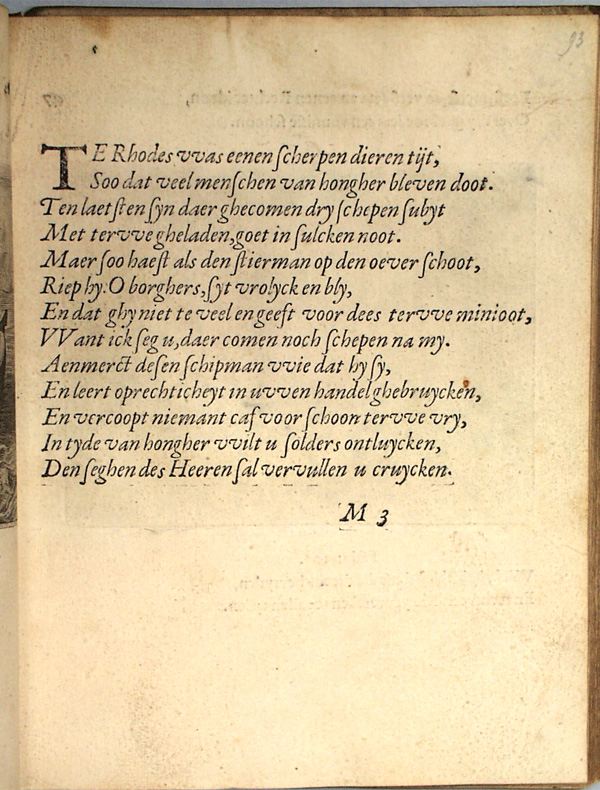 93
TE Rhodes vvas eenen scherpen dieren tijt,
Soo dat veel menschen van hongher bleven doot.
Ten laetsten syn daer ghecomen dry schepen subyt
Met tervve gheladen, goet in sulcken noot.
Maer soo haest als den stierman op den oever schoot,
Riep hy: O borghers, syt vrolyck en bly,
En dat ghy niet te veel en geeft voor dees tervve minioot,
VVant ick seg u, daer comen noch schepen na my.
Aenmerct desen schipman vvie dat hy sy,
En leert oprechticheyt in uvven handel ghebruycken,
En vercoopt niemant caf voor schoon tervve vry,
In tyde van hongher vvilt u solders ontluycken,
Den seghen des Heeren sal vervullen u cruycken.
M 3